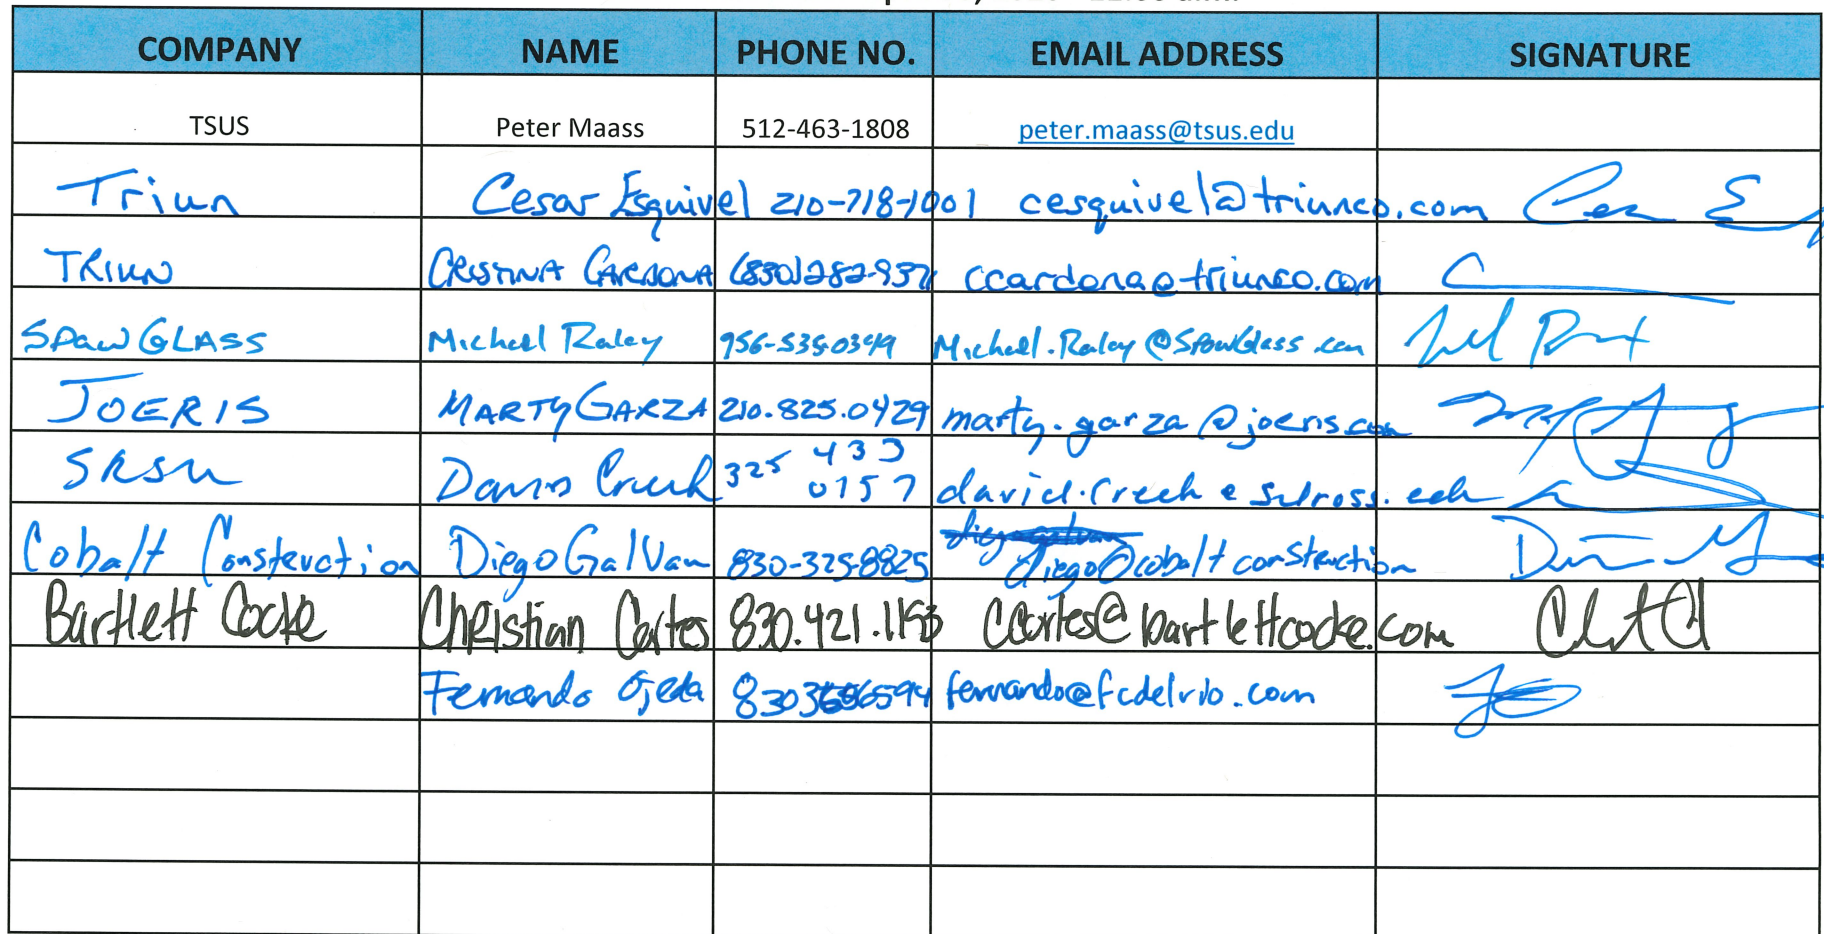 COMPANY NAME PHONE NO. EMAIL ADDRESS SIGNATURE
TSUS Peter Maass 512-463-1808 peter.maass@tsus.edu
Triun Cesar Esquivel 210-718-1001 cesquivel@triunco.com
TRIUN CRISTINA CARDONA ccardona@triunco.com
SPawGLASS Michael Raley 956-535-0349 Michael.Raley@SpawGlass.com
JOERIS MARTY GARZA 210.825.0429 marty.garza@joeris.com
SRSU 325 433 0157
Cobalt Construction Diego Galvan 830-325-8825 diego@cobalt construction
Bartlett Cocke Christian Cortes 830.421.1153 ccortes@bartlettcocke.com
Fernando Ojeda fernando@fcdelrio.com